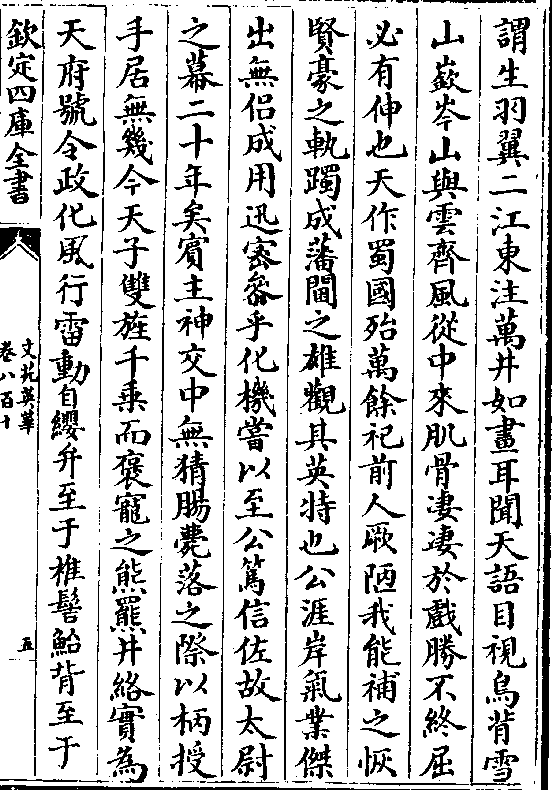 謂生羽翼二江東注萬井如畫耳聞天語目視鳥背雪
山嶔岑山與雲齊風從中來肌骨凄凄於戲勝不終屈
必有伸也天作蜀國殆萬餘祀前人陋我能補之恢
賢豪之軌躅成藩閫之雄觀其英特也公涯岸氣業傑
出無侣成用迅寋畚乎化機嘗以至公篤信佐故太尉
之幕二十年矣賓主神交中無猜腸薨落之際以柄授
手居無幾今天子雙旌千乗而褒寵之熊羆井絡實為
天府號令政化風行雷動自纓弁至于椎髻鮐背至于
欽定四庫全書
文苑英華
卷八百十
五